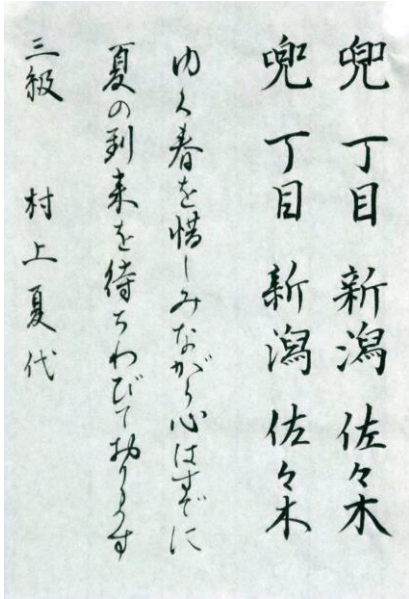 兜 丁目 新潟 佐々木
兜 丁目 新潟 佐々木
ゆく春を惜しみながら心はすでに
夏の到来を待ちわびております
三級 村上夏代